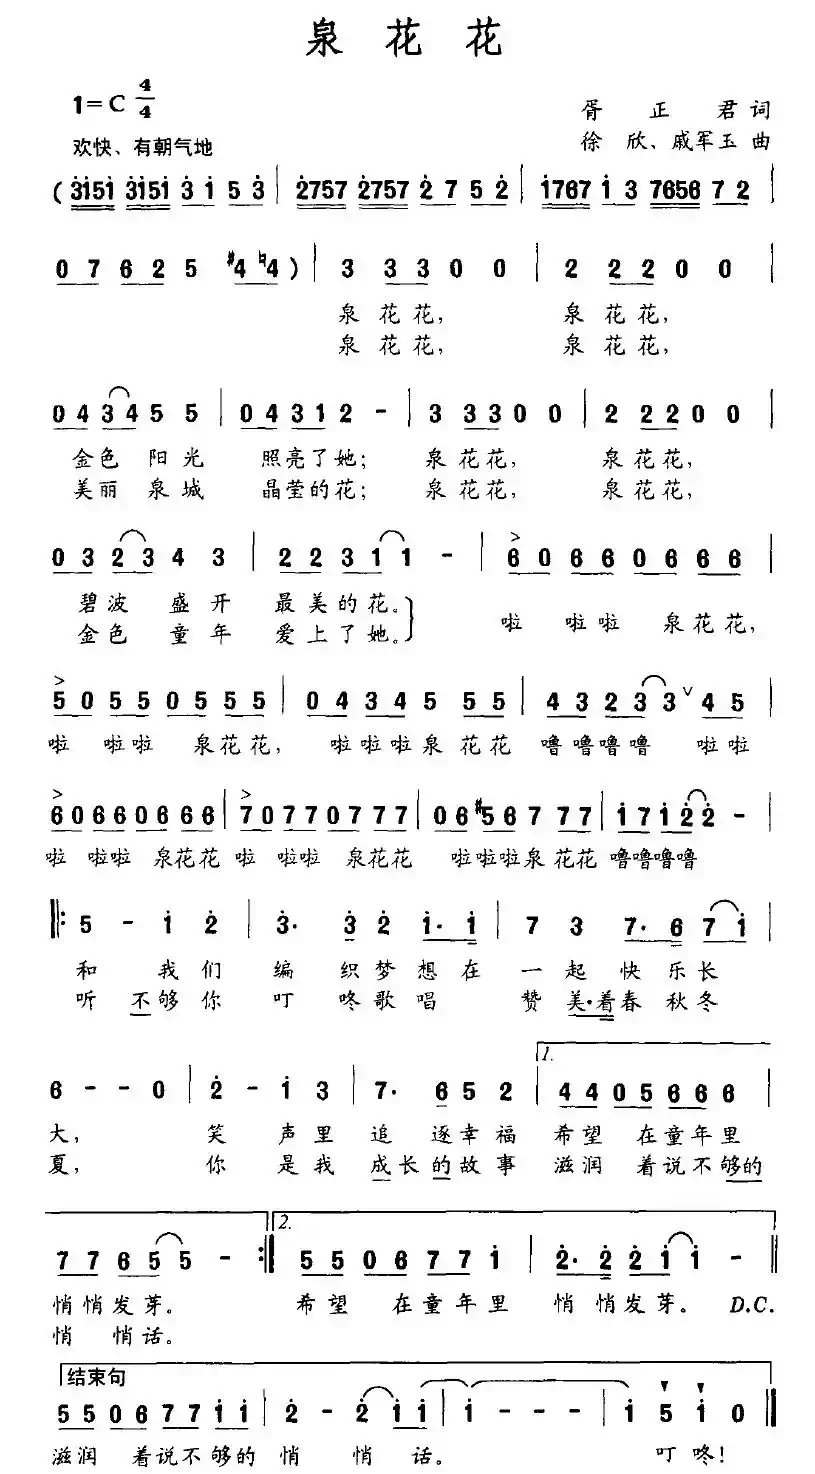 泉花花
1=C 4/4
胥正君词
欢快、有朝气地
徐欣、戚军玉曲
(3151 3151 3 1 5 3 | 2757 2757 2 7 5 2 | 1767 1 3 7656 7 2 |
0 7 6 2 5 #4 ♮4 ) | 3 3 3 0 0 | 2 2 2 0 0 |
泉花花, 泉花花,
泉花花, 泉花花,
0 4 3 4 5 5 | 0 4 3 1 2 - | 3 3 3 0 0 | 2 2 2 0 0 |
金色 阳光 照亮了她; 泉花花, 泉花花,
美丽 泉城 晶莹的花; 泉花花, 泉花花,
0 3 2 3 4 3 | 2 2 3 1 1 - | 6 0 6 6 0 6 6 6 |
碧波 盛开 最美的花。 啦 啦啦 泉花花,
金色 童年 爱上了她。
5 0 5 5 0 5 5 5 | 0 4 3 4 5 5 5 | 4 3 2 3 3 ∨ 4 5 |
啦 啦啦 泉花花, 啦啦啦泉花花 噜噜噜噜 啦啦
6 0 6 6 0 6 6 6 | 7 0 7 7 0 7 7 7 | 0 6 #5 6 7 7 7 | 1 7 1 2 2 - |
啦 啦啦 泉花花 啦 啦啦 泉花花 啦啦啦泉花花 噜噜噜噜
|: 5 - 1 2 | 3· 3 2 1· 1 | 7 3 7· 6 7 1 |
和 我们 编 织梦想在 一起 快乐长
听 不够你 叮 咚歌唱 赞 美·着春秋冬
6 - - 0 | 2 - 1 3 | 7· 6 5 2 | 1. 4 4 0 5 6 6 6 |
大, 笑 声里 追 逐幸福 希望 在童年里
夏, 你 是我 成长的故事 滋润 着说不够的
7 7 6 5 5 - :| 2. 5 5 0 6 7 7 1 | 2· 2 2 1 1 - ||
悄悄发芽。 希望 在童年里 悄悄发芽。 D.C.
悄 悄话。
结束句
5 5 0 6 7 7 1 1 | 2 - 2 1 1 | 1 - - - | 1 5 1 0 ||
滋润 着说不够的 悄 悄 话。 叮 咚!